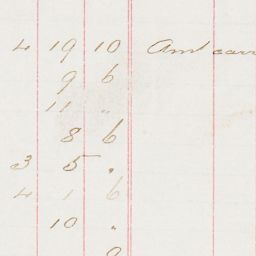 4 19 10 Amt carr
9 6
11 "
8 6
3 5 "
4 1 6
10 "